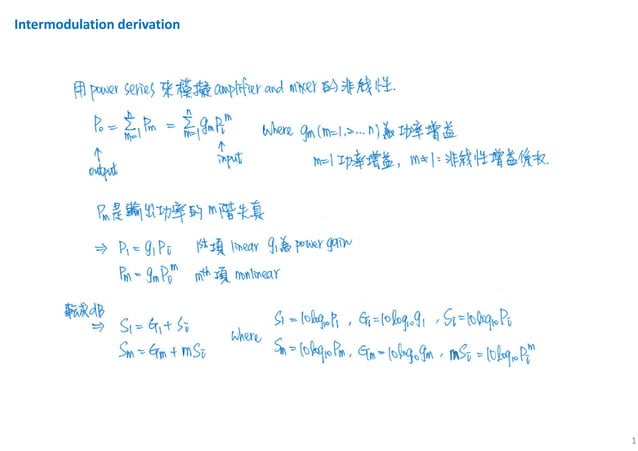 Intermodulation derivation
用power series來模擬amplifier and mixer的非線性.
P₀ = Σⁿₘ₌₁ Pₘ = Σⁿₘ₌₁ gₘPᵢᵐ where gₘ(m=1,2...n)為功率增益
↑ output ↑ input m=1功率增益, m≠1=非線性增益係数.
Pₘ是輸出功率的m階失真
⇒ P₁ = g₁Pᵢ 1st項 linear g₁為power gain
Pₘ = gₘPᵢᵐ mth項 nonlinear
轉成dB
⇒ S₁ = G₁ + Sᵢ where S₁ = 10log₁₀P₁, G₁ = 10log₁₀g₁, Sᵢ = 10log₁₀Pᵢ
Sₘ = Gₘ + mSᵢ Sₘ = 10log₁₀Pₘ, Gₘ = 10log₁₀gₘ, mSᵢ = 10log₁₀Pᵢᵐ
1